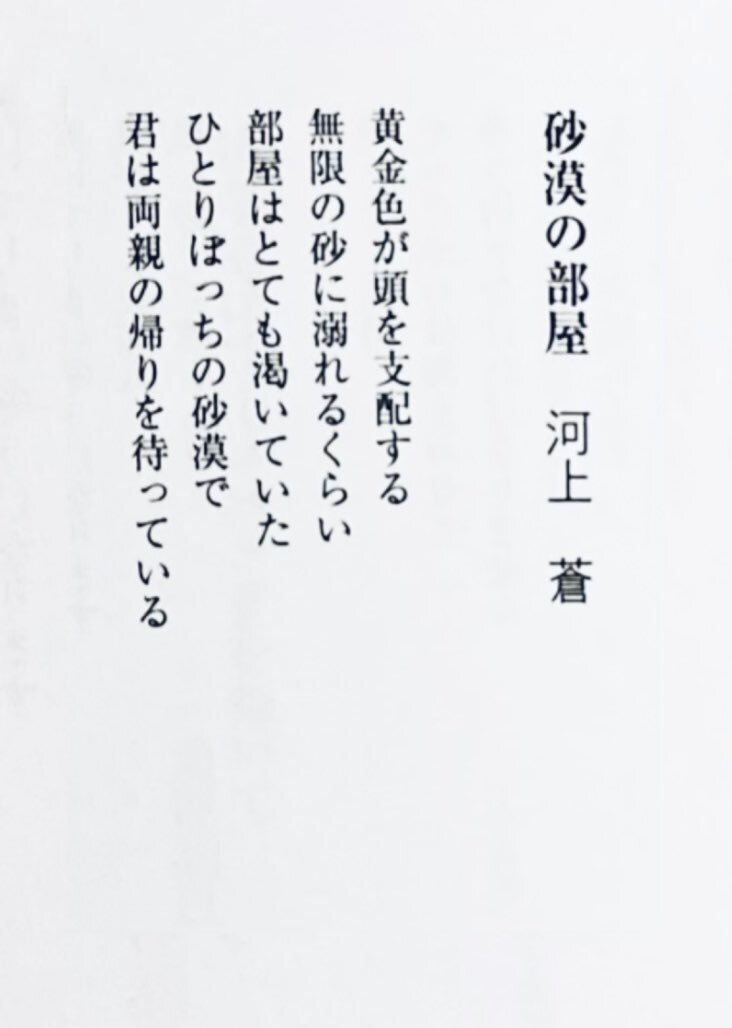 砂漠の部屋　河上　蒼
黄金色が頭を支配する
無限の砂に溺れるくらい
部屋はとても渇いていた
ひとりぼっちの砂漠で
君は両親の帰りを待っている